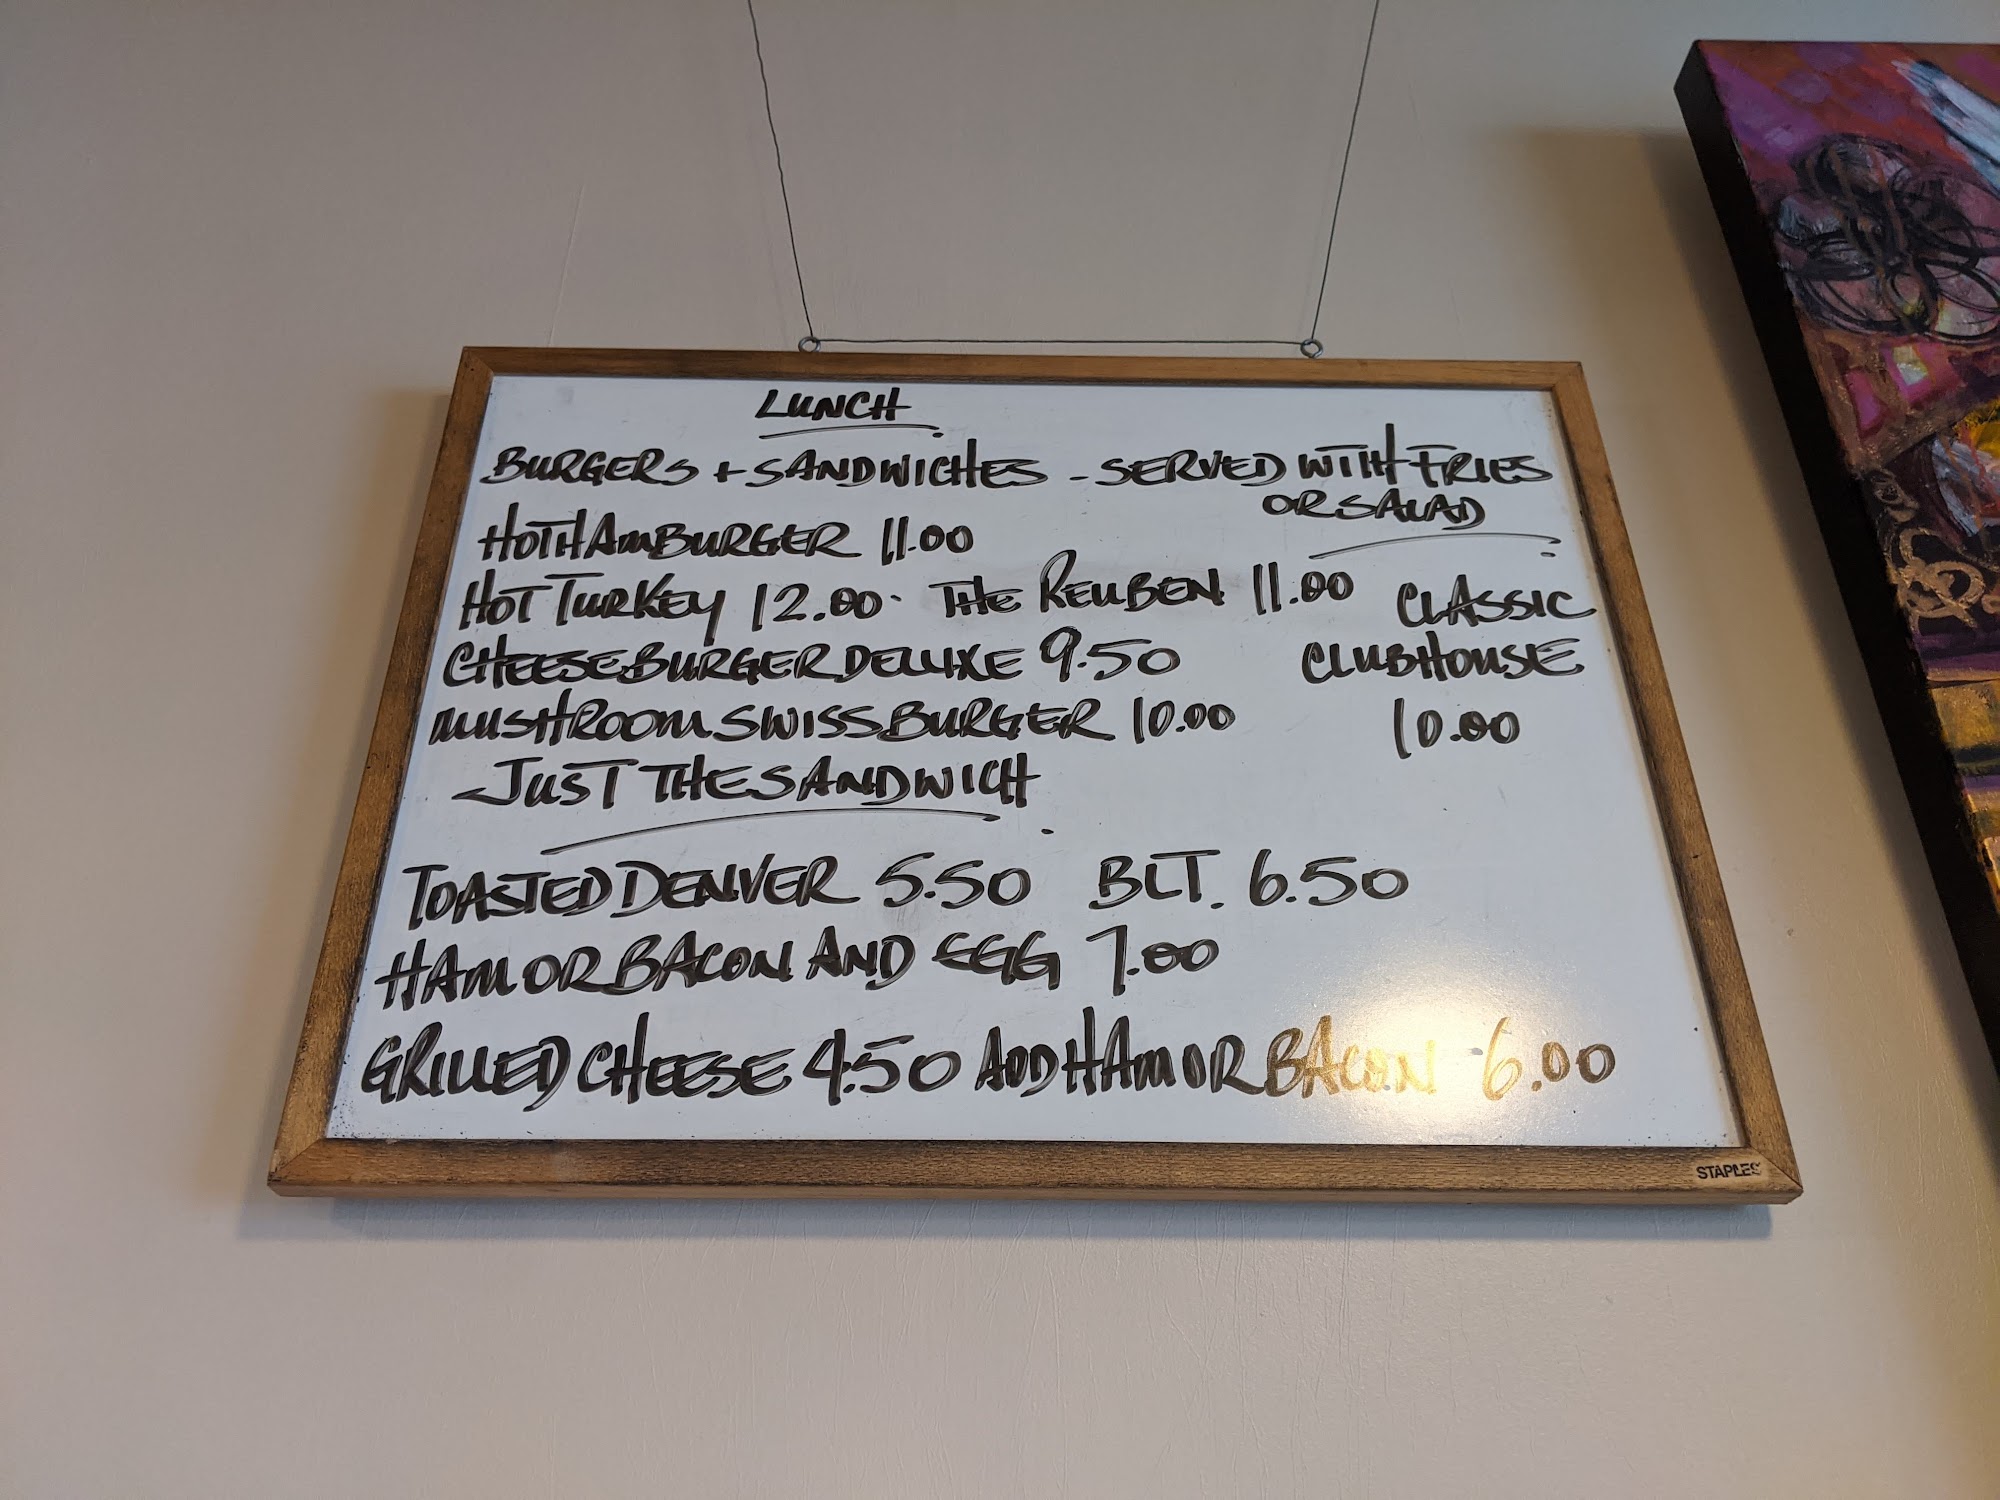 LUNCH
BURGERS + SANDWICHES - SERVED WITH FRIES
OR SALAD
HOT HAMBURGER 11.00
HOT TURKEY 12.00. THE REUBEN 11.00
CLASSIC
CLUBHOUSE
10.00
CHEESEBURGER DELUXE 9.50
MUSHROOM SWISS BURGER 10.00
JUST THE SANDWICH
TOASTED DENVER 5.50 BLT. 6.50
HAM OR BACON AND EGG 7.00
GRILLED CHEESE 4.50 ADD HAM OR BACON 6.00
STAPLES